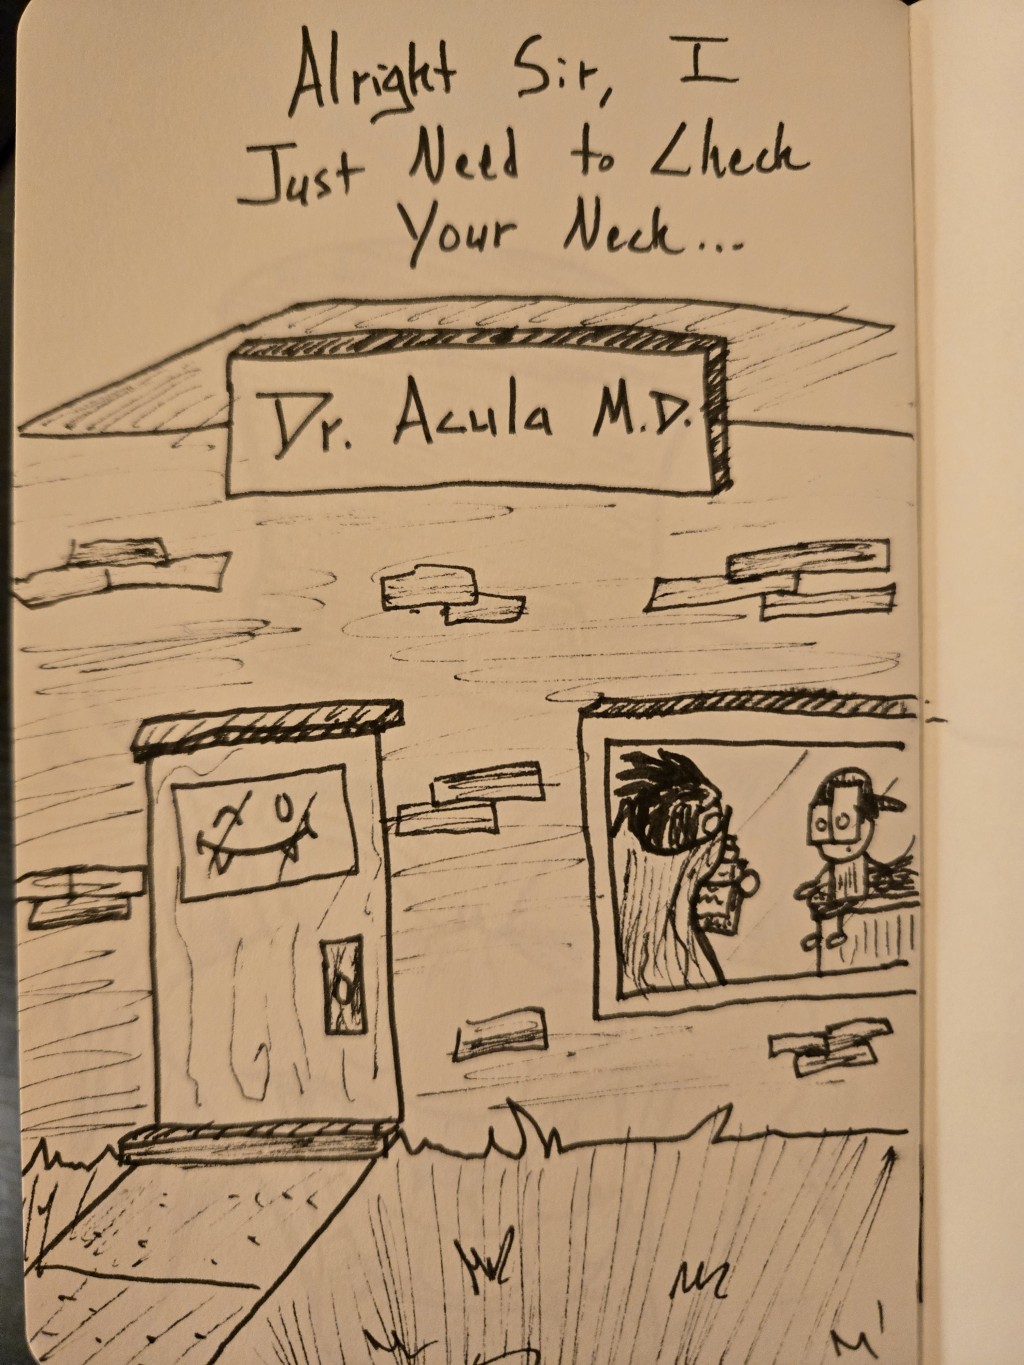 Alright Sir, I
Just Need to Check
Your Neck...
Dr. Acula M.D.